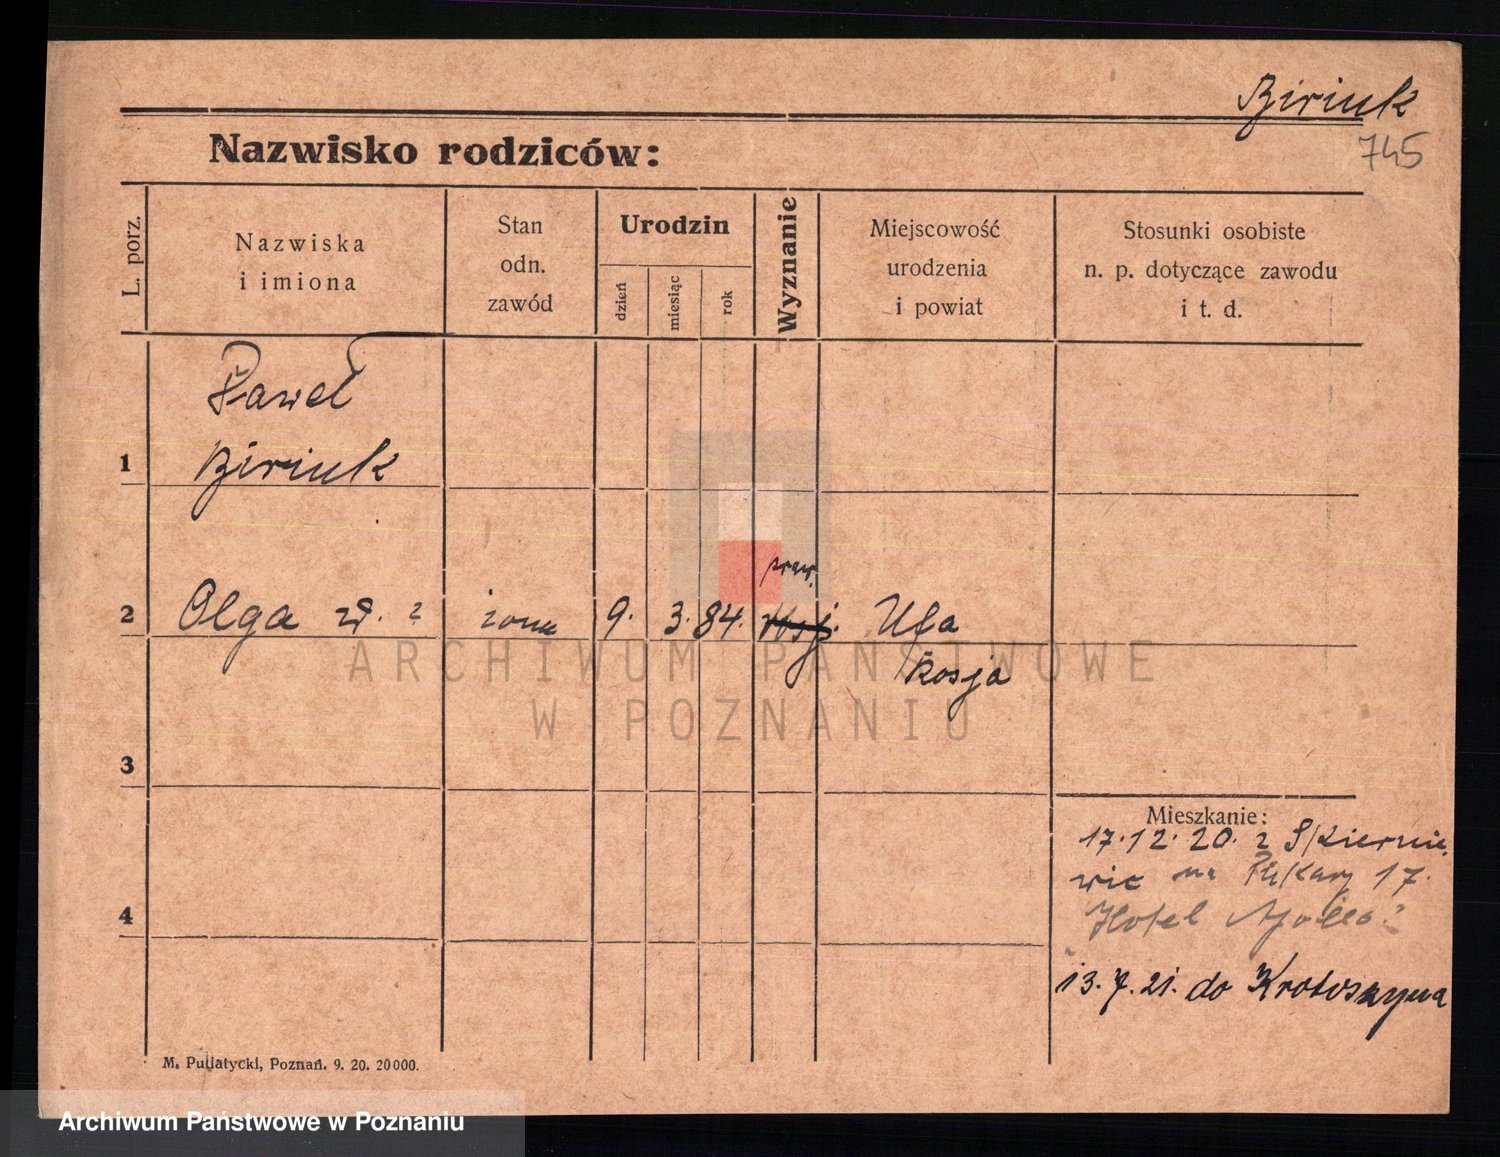 Biriuk
745
Nazwisko rodziców:
L. porz.
Nazwiska
i imiona
Stan
odn.
zawód
Urodzin
dzień
miesiąc
rok
Wyznanie
Miejscowość
urodzenia
i powiat
Stosunki osobiste
n. p. dotyczące zawodu
i t. d.
Paweł
1 Biriuk
praw.
2 Olga zd. ? żona 9. 3. 84. Ufa
Rosja
ARCHIWUM PAŃSTWOWE
W POZNANIU
3
Mieszkanie:
17.12.20. z Skiernie
wic na 17.
4
"Hotel Apollo"
13.7.21. do Krotoszyna
M. Putiatycki, Poznań. 9. 20. 20000.
Archiwum Państwowe w Poznaniu